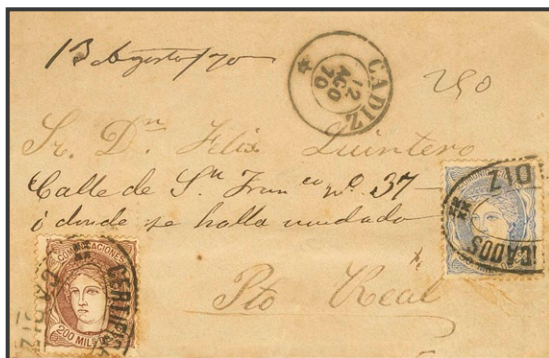 13 Agosto/70
CADIZ
12
AGO
70
250
Sr. Dn Felix Quintero
Calle de Sn Franco no. 37
ó donde se halla mudado
Pto Real
COMUNICACIONES
200 MILS
CERTIFICADOS
CADIZ
CADOS
DIZ